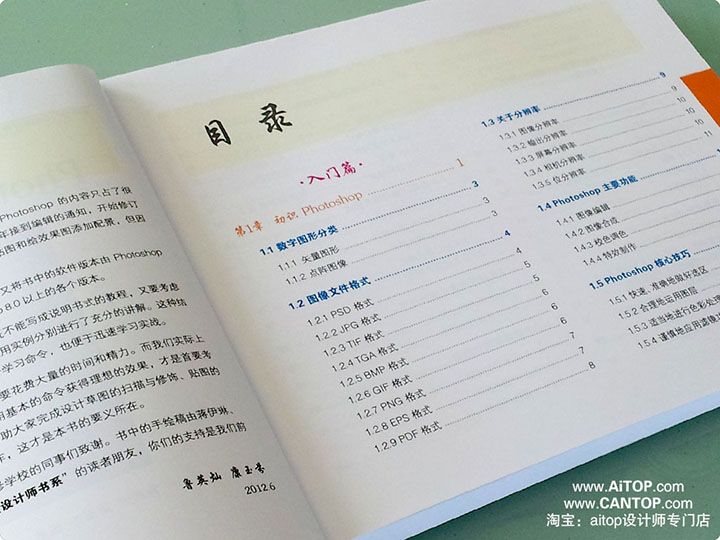 Photoshop 的内容只占了很
年接到编辑的通知，开始修订
贴图和给效果图添加配景，但因
又将书中的软件版本由 Photoshop
8.0 以上的各个版本。
不能写成说明书式的教程，又要考虑
用实例分别进行了充分的讲解。这种结
学习命令，也便于迅速学习实战。
要花费大量的时间和精力。而我们实际上
用基本的命令获得理想的效果，才是首要考
助大家完成设计草图的扫描与修饰、贴图的
，这才是本书的要义所在。
学校的同事们致谢。书中的手绘稿由蒋伊琳、
设计师书系”的读者朋友，你们的支持是我们前
鲁英灿 康玉芬
2012.6
目录
·入门篇·
第1章 初识 Photoshop 1
1.1 数字图形分类 3
1.1.1 矢量图形 3
1.1.2 点阵图像
1.2 图像文件格式 4
1.2.1 PSD 格式 4
1.2.2 JPG 格式 5
1.2.3 TIF 格式 5
1.2.4 TGA 格式 6
1.2.5 BMP 格式 6
1.2.6 GIF 格式 7
1.2.7 PNG 格式 7
1.2.8 EPS 格式 8
1.2.9 PDF 格式
1.3 关于分辨率 9
1.3.1 图像分辨率 9
1.3.2 输出分辨率 10
1.3.3 屏幕分辨率 10
1.3.4 相机分辨率 10
1.3.5 位分辨率
1.4 Photoshop 主要功能
1.4.1 图像编辑
1.4.2 图像合成
1.4.3 校色调色
1.4.4 特效制作
1.5 Photoshop 核心技巧
1.5.1 快速、准确地做好选区
1.5.2 合理地运用图层
1.5.3 适当地进行色彩处
1.5.4 谨慎地应用滤镜
www.AiTOP.com
www.CANTOP.com
淘宝：aitop设计师专门店